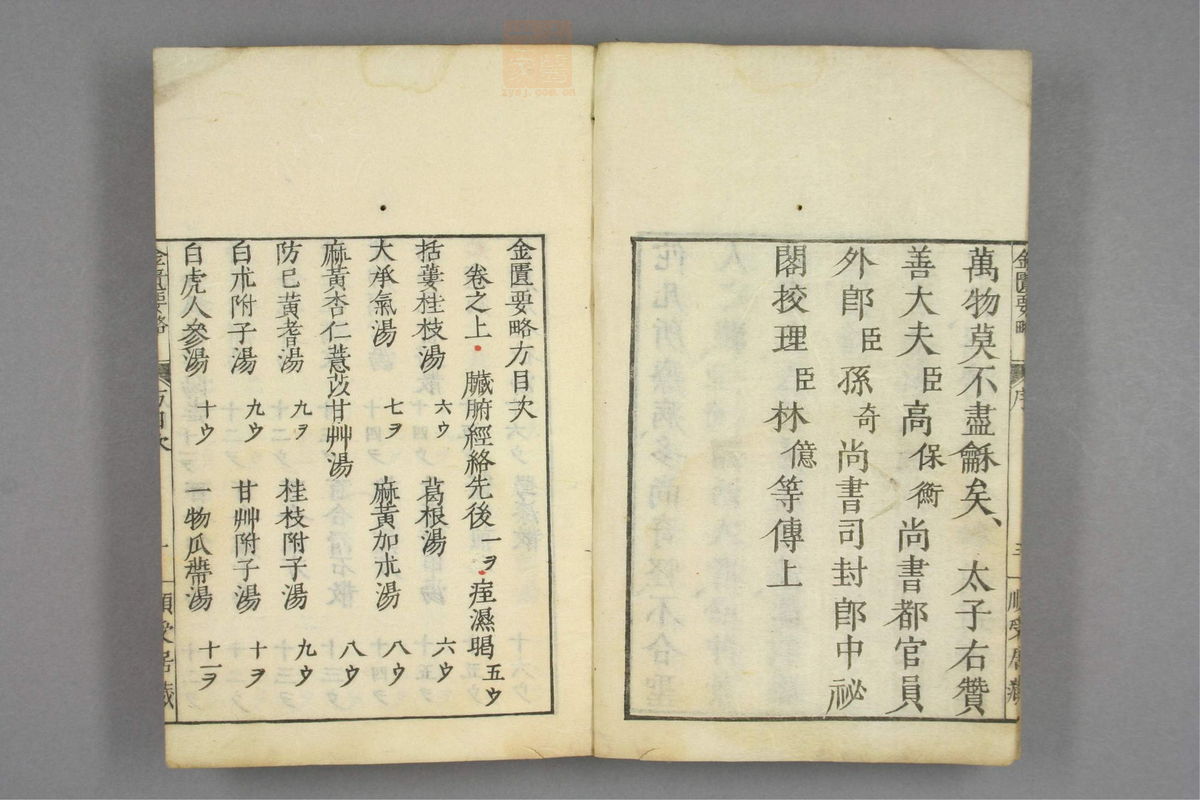 金匱要略
序
三
順受居藏
萬物莫不盡龢矣、太子右贊
善大夫臣高保衡尚書都官員
外郎臣孫奇尚書司封郎中祕
閣挍理臣林億等傳上
金匱要略方目次
卷之上 臟腑經絡先後一ヲ 痓濕暍五ウ
括蔞桂枝湯 六ウ 葛根湯 六ウ
大承氣湯 七ヲ 麻黃加朮湯 八ウ
麻黃杏仁薏苡甘艸湯 八ウ
防已黃耆湯 九ヲ 桂枝附子湯 九ウ
白朮附子湯 九ウ 甘艸附子湯 十ヲ
白虎人參湯 十ウ 一物瓜蔕湯 十一ヲ
金匱要略
方目次
一
順受居藏
zysj.com.cn